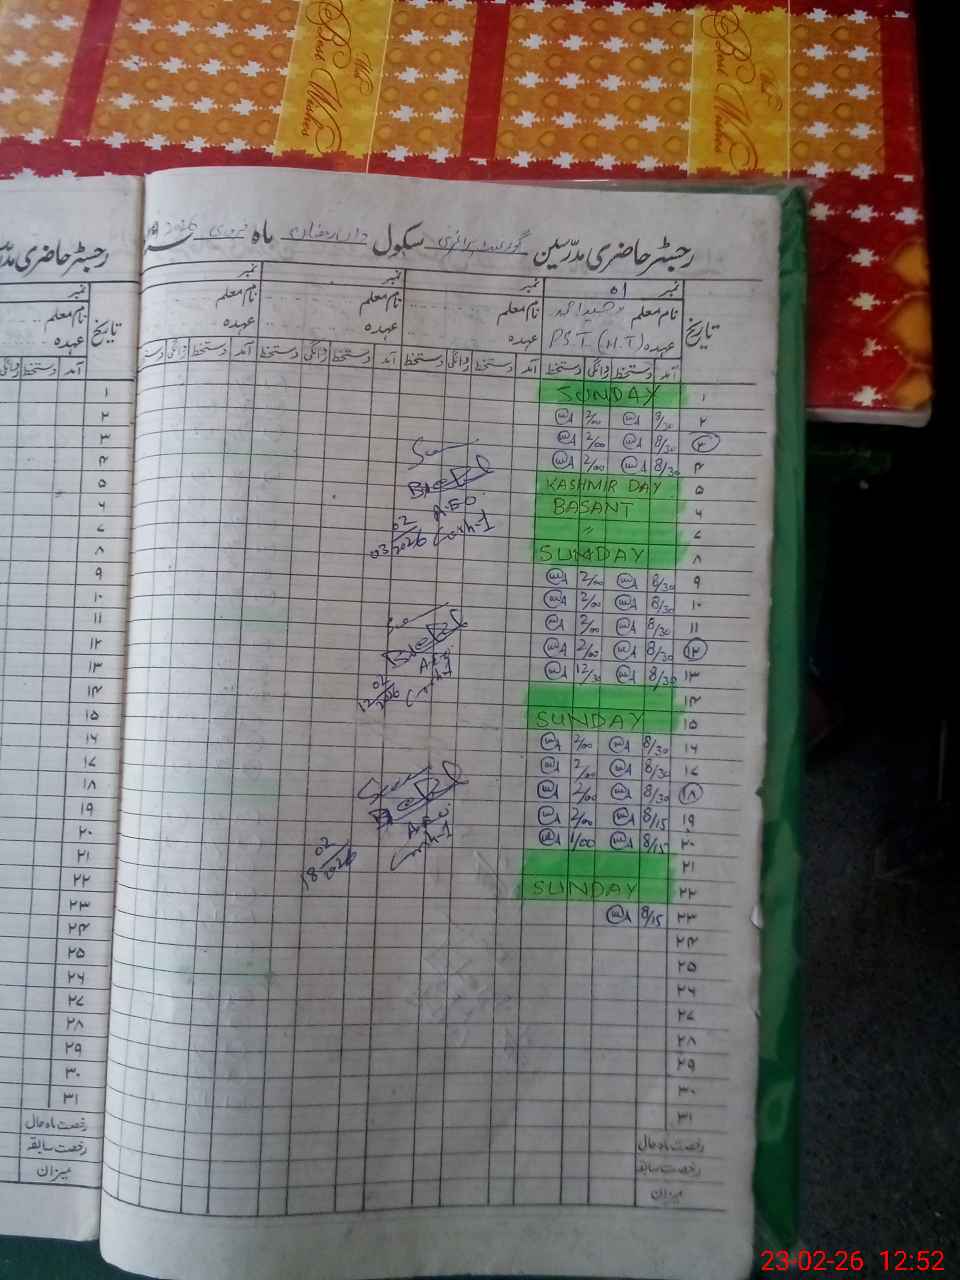 Best Wishes
Best Wishes
رجسٹر حاضری مدرسین گورنمنٹ پرائمری سکول ماہ فروری 2026
نمبر 01 نمبر نمبر نمبر
نام معلم نام معلم نام معلم نام معلم
عہدہ P.S.T (H.T) عہدہ عہدہ عہدہ
تاریخ آمد دستخط روانگی دستخط آمد دستخط روانگی دستخط آمد دستخط روانگی دستخط آمد دستخط روانگی دستخط
۱ SUNDAY
۲ 8/30 2/00
۳ 8/30 2/00
۴ 8/30 2/00
۵ KASHMIR DAY
۶ BASANT
۷ "
۸ SUNDAY
۹ 8/30 2/00
۱۰ 8/30 2/00
۱۱ 8/30 2/00
۱۲ 8/30 2/00
۱۳ 8/30 12/30
۱۴
۱۵ SUNDAY
۱۶ 8/30 2/00
۱۷ 8/30 2/00
۱۸ 8/30 2/00
۱۹ 8/15 2/00
۲۰ 8/15 1/00
۲۱
۲۲ SUNDAY
۲۳ 8/15
۲۴
۲۵
۲۶
۲۷
۲۸
۲۹
۳۰
۳۱
رخصت ماہ حال
رخصت سابقہ
میزان
A.E.O
03/02/2026
A.E.O
12/02/2026
A.E.O
18/02/2026
رجسٹر حاضری
تاریخ نمبر
نام معلم
عہدہ
آمد دستخط روانگی
۱
۲
۳
۴
۵
۶
۷
۸
۹
۱۰
۱۱
۱۲
۱۳
۱۴
۱۵
۱۶
۱۷
۱۸
۱۹
۲۰
۲۱
۲۲
۲۳
۲۴
۲۵
۲۶
۲۷
۲۸
۲۹
۳۰
۳۱
رخصت ماہ حال
رخصت سابقہ
میزان
23-02-26 12:52